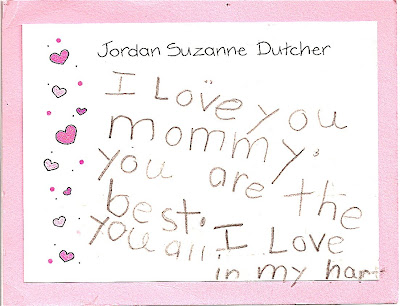 Jordan Suzanne Dutcher
I Love you
mommy.
you are the
best. I Love
you all
in my hart